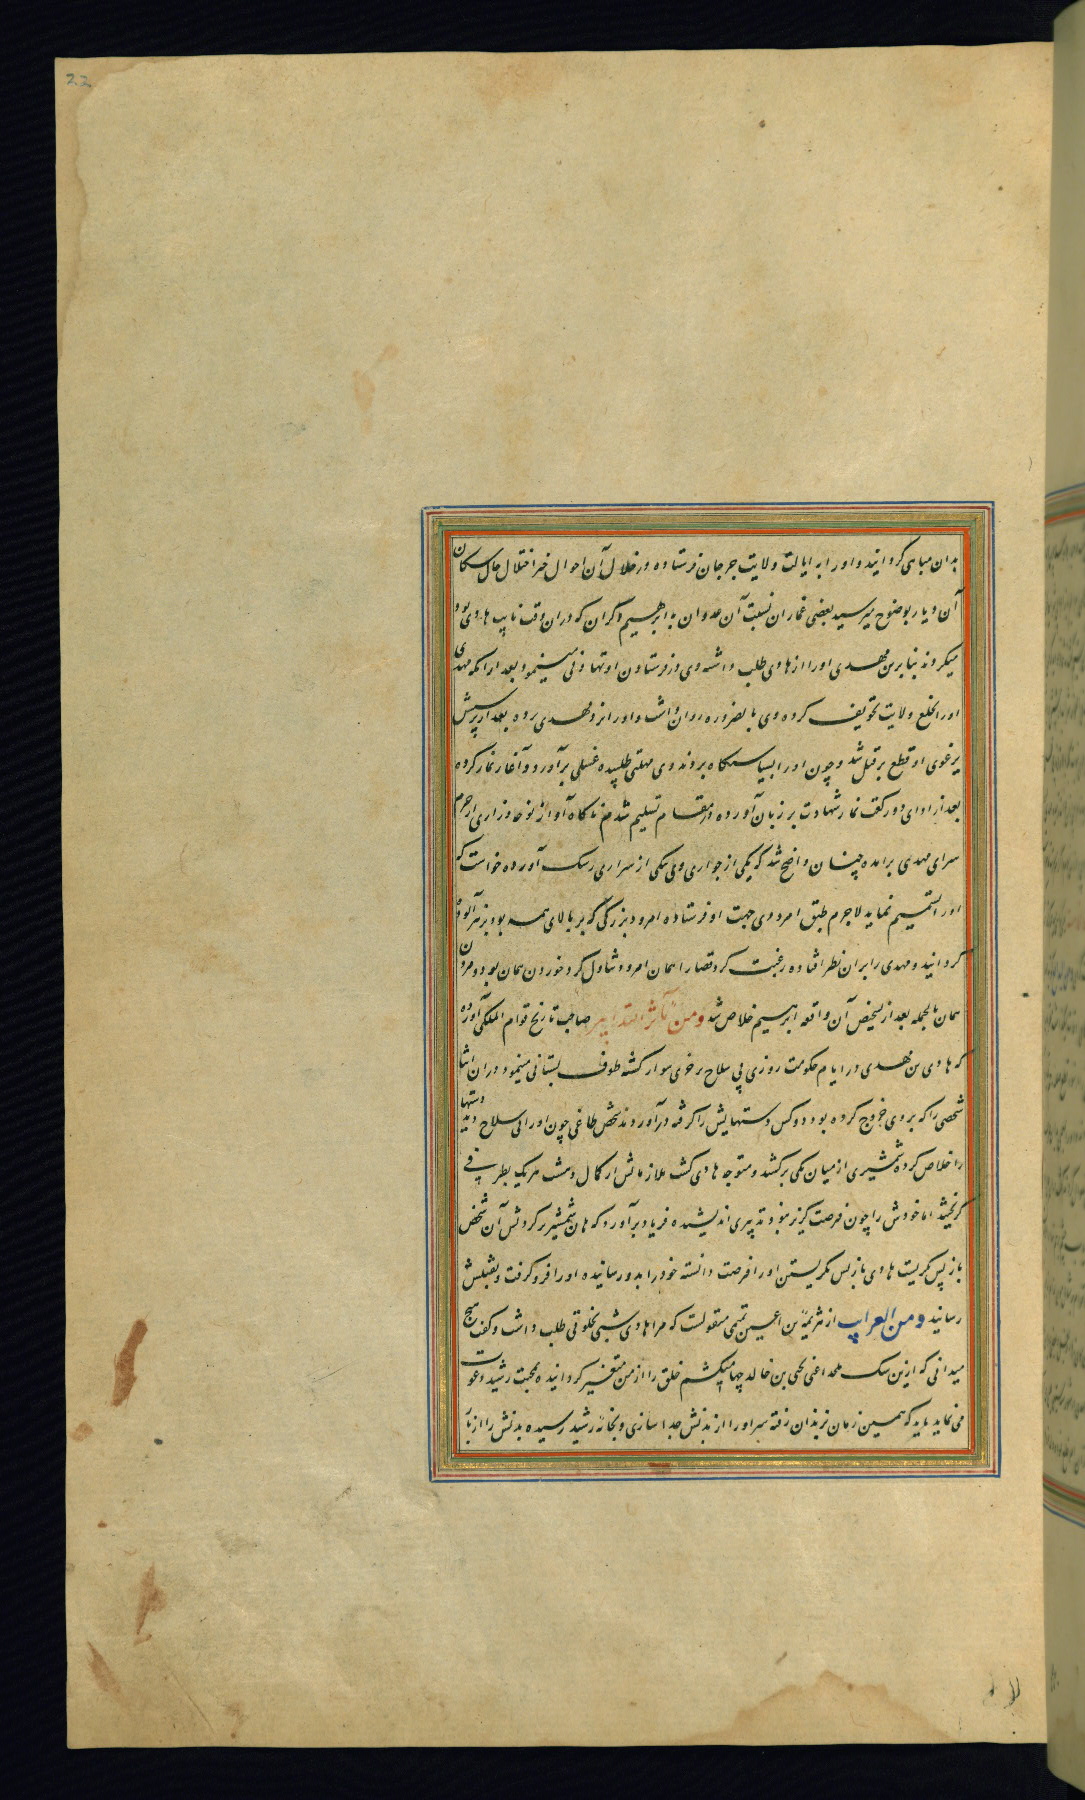 22
بدان مباهی گردانید و او را به ایالت ولایت جرجان فرستاده در خلال آن احوال خبر اختلال حال سکان
آن دیار بوضوح میرسید بعضی غمازان نسبت آن عدوان به ابراهیم ذکران که دران وقت نایب هادی بود
میکردند بنابرین مهدی او را از هادی طلب داشته وی در فرستادن او تهاونی مینمود و بعد از آنکه مهدی
او را بخلع ولایت تخویف کرده وی بالضروره روان داشت و او را نزد مهدی برده بعد از پرسش
یرغوی او قطع بر قتل شد و چون او را بسیاستگاه بردند وی مهلتی طلبیده غسلی برآورد و آغاز نماز کرده
بعد از ادای دو رکعت نماز شهادت بر زبان آورده در مقام تسلیم شد هم ناگاه آواز نوحه و زاری از حرم
سرای مهدی برآمده چنان واضح شد که یکی از جواری وی بیکی از سراری رشک آورده خواست که
او را تسمیم نماید لاجرم طبق امرودی جهت او فرستاده امرود بزرگی که بر بالای همه بود بزهر آلوده
گردانید و مهدی را بران نظر افتاده رغبت کرد قضا را همان امرود تناول کرد خوردن همان بود و مردن
همان بالجمله بعد از تشخیص آن واقعه ابراهیم خلاص شد و من مآثر التدابیر صاحب تاریخ قوام الملکی آورده
که هادی بن مهدی در ایام حکومت روزی بی سلاح بر خری سوار گشته طوف بستانی مینمود دران اثنا
شخصی را که بر وی خروج کرده بود دو کس دستهایش را گرفته درآوردند شخص طاغی چون او را بی سلاح دید دستها
را خلاص کرده شمشیری از میان یکی برکشد و متوجه هادی گشت ملازمانش از کمال دهشت هر یک بطرفی
گریختند اما خودش را چون فرصت گریز نبود تدبیری اندیشیده فریاد برآورد که هان شمشیر بر گردنش آن شخص
باز پس نگریست هادی باز پس نگریستن او را فرصت دانسته خود را بدو رسانیده او را فرو گرفت و بقتلش
رسانید و من الغرایب از هرثمة بن اعین تمیمی منقولست که مرا هادی شبی بخلوتی طلب داشت و گفت هیچ
میدانی که ازین سگ ملحد اعنی یحیی بن خالد چها میکشم خلق را از من متنفر گردانیده بمحبت رشید دعوت
می نماید باید که همین زمان بزندان رفته سر او را از بدنش جدا سازی و بخانه رشید رسیده بدنش را از بار